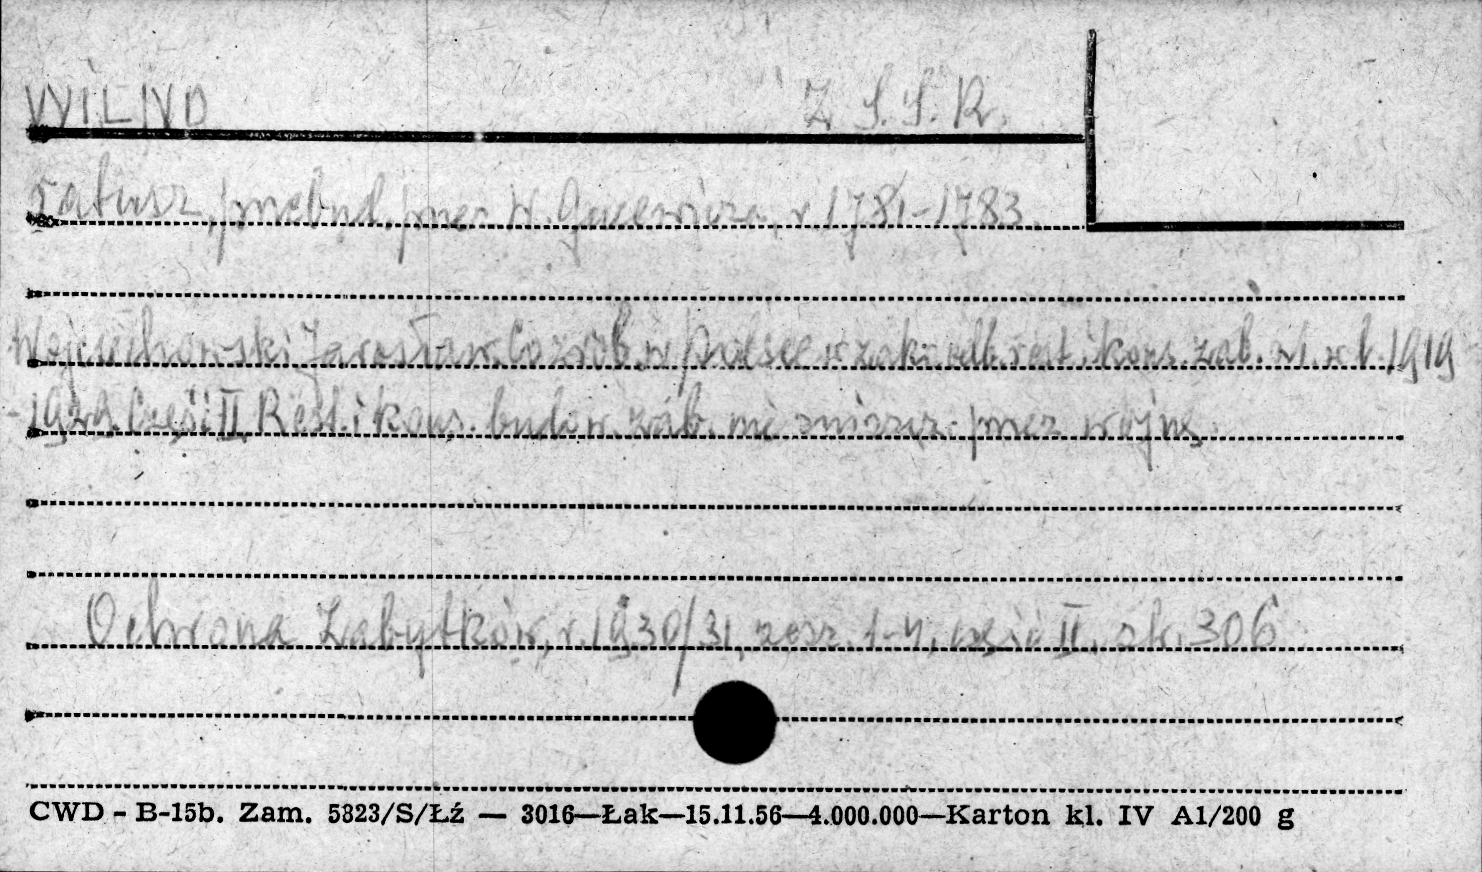 WILNO Z S.S.R.
ratusz, przebud. przez W. Gucewicza, r 1781-1783.
Wojciechowski Jarosław. Co zrob. w Polsce w zakr. odb. rest. i kons. zab. st. w l. 1919
-1929. Część II Rest. i kons. budow. zab. nie zniszcz. przez wojnę.
Ochrona Zabytków, r. 1930/31, zesz. 1-4, część II, str. 306
CWD - B-15b. Zam. 5823/S/Łź — 3016—Łak—15.11.56—4.000.000—Karton kl. IV A1/200 g